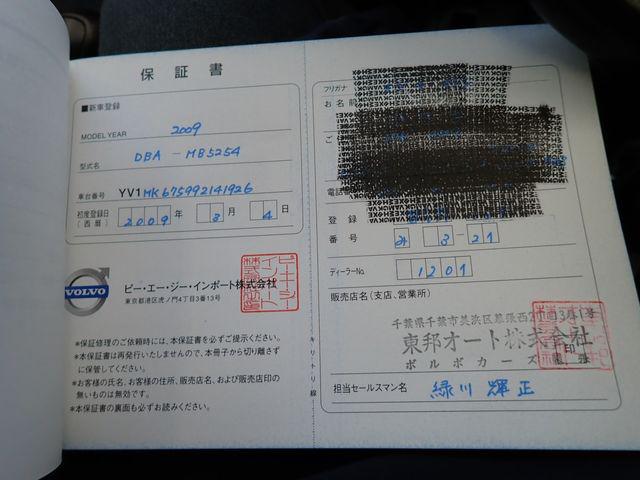 保証書
■新車登録
MODEL YEAR 2009
型式名 DBA-MB5254
車台番号 YV1MK675992141926
初度登録日 2009年 3月 4日
(西暦)
VOLVO
ピー・エー・ジー・インポート株式会社
東京都港区虎ノ門4丁目3番13号
*保証修理のご依頼時には、本保証書を必ずご提示ください。
*本保証書は再発行いたしませんので、本冊子から切り離さず
に保管してください。
*お客様の氏名、お客様の住所、販売店名、および販売店印の
無いものは無効です。
*本保証書の裏面も必ずお読みください。
キリトリ線
フリガナ
お名前
ご
電話
登録
番号 3-21
ディーラーNo. 1201
販売店名(支店、営業所)
千葉県千葉市美浜区
東邦オート株式会社
ボルボカーズ
印
担当セールスマン名 緑川 輝正